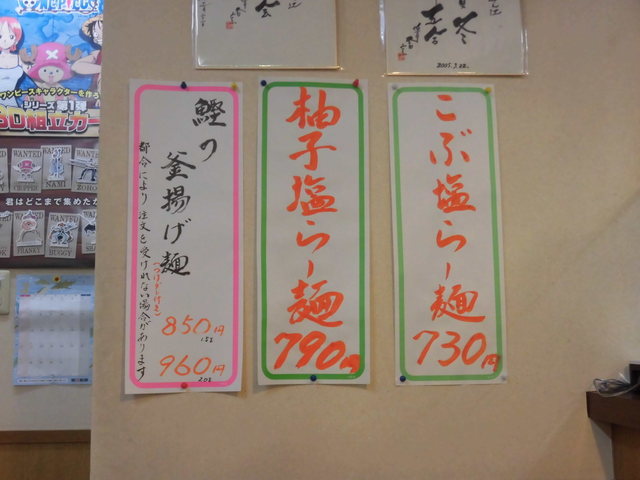 こぶ塩らー麺
730円
柚子塩らー麺
790円
鰹の
釜揚げ麺
(つけダレ付き)
850円
1.5玉
960円
2.0玉
都合により注文を受けれない場合があります
2005.3.22.
ワンピースキャラを作ろ
シリーズ第1弾
3D組立カー
WANTED
CHOPPER
WANTED
NAMI
WANTED
ZORO
君はどこまで集めたか
WANTED
FRANKY
WANTED
BUGGY
WANTED